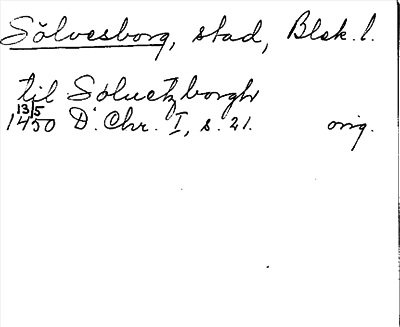 Sölvesborg, stad, Blek. l.
til Søluetzborgh
13/5
1450 D. Chr. I, s. 21. orig.